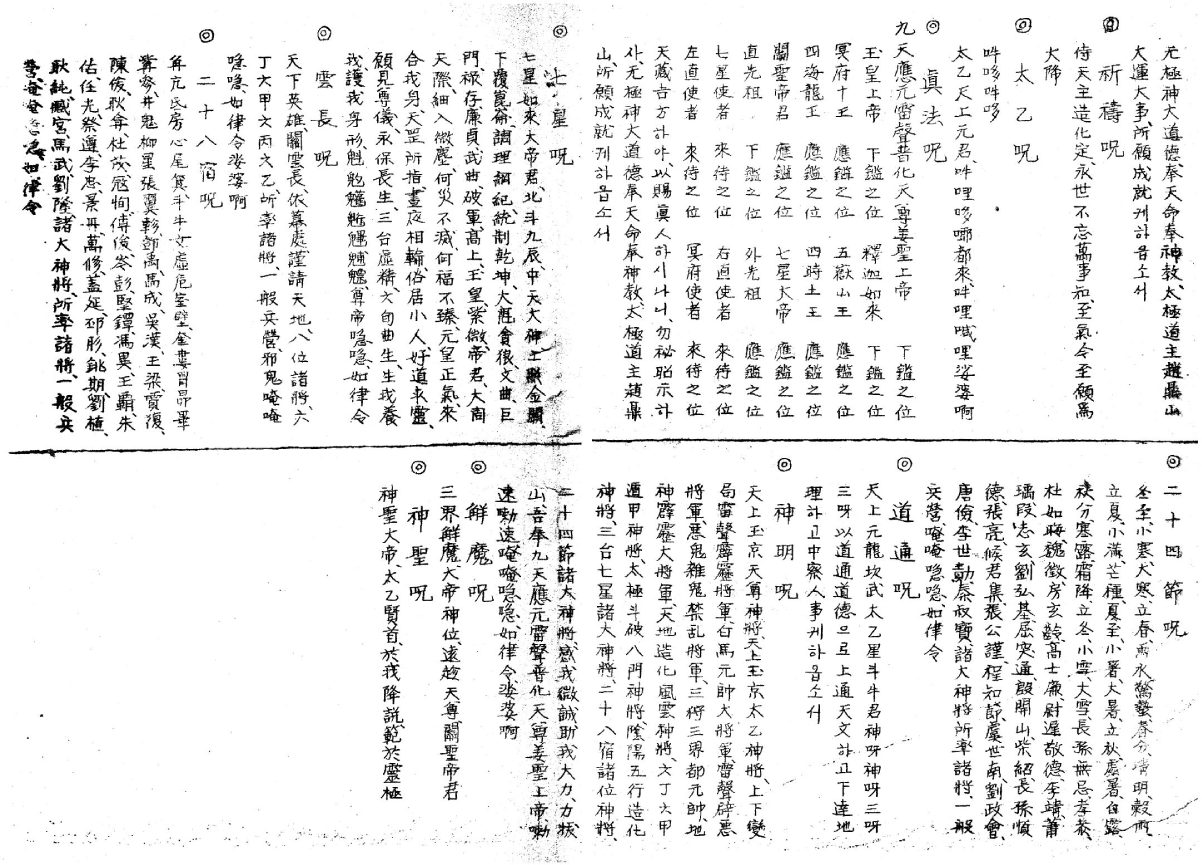 元極神大道德、奉天命奉神敎、太極道主趙鼎山
大運大事、所願成就케하읍소서
◎ 祈禱呪
侍天主造化定、永世不忘萬事知、至氣今至願爲
大降
◎ 太乙呪
吽哆吽哆
太乙天上元君、吽哩哆㖿都來、吽哩喊哩娑婆啊
◎ 眞法呪
九天應元雷聲普化天尊姜聖上帝 下鑑之位
玉皇上帝 下鑑之位 釋迦如來 下鑑之位
冥府十王 應鑑之位 五嶽山王 應鑑之位
四海龍王 應鑑之位 四時土王 應鑑之位
關聖帝君 應鑑之位 七星大帝 應鑑之位
直先祖 下鑑之位 外先祖 應鑑之位
七星使者 來待之位 右直使者 來待之位
左直使者 來待之位 冥府使者 來待之位
天藏吉方하야、以賜眞人하시나니、勿祕昭示하
사、无極神大道德奉天命奉神敎太極道主趙鼎
山所願成就케하읍소서
◎ 七星呪
七星如來大帝君、北斗九辰、中天大神、上朝金闕、
下覆崑崙、調理綱紀、統制乾坤、大魁貪狼、文曲巨
門、祿存廉貞、武曲破軍、高上玉皇、紫微帝君、大周
天際、細入微塵、何災不滅、何福不臻、元皇正氣、來
合我身、天罡所指、晝夜相輪、俗居小人、好道求靈、
願見尊儀、永保長生、三台虛精、六旬曲生、生我養
我護我身形、魁魀魓魒䰢魓魒尊帝唵唵、如律令
◎ 雲長呪
天下英雄關雲長、依幕處謹請天地八位諸將、六
丁六甲六丙六乙、所率諸將、一般兵營邪鬼唵唵
唵唵如律令娑婆啊
◎ 二十八宿呪
角亢氐房心尾箕斗牛女虛危室壁奎婁胃昴畢
觜參井鬼柳星張翼軫鄧禹、馬成、吳漢、王梁、賈復、
陳俊、耿弇、杜茂、寇恂、傅俊、岑彭、堅鐔、馮異、王霸、朱
佑、任光、祭遵、李忠、景丹、萬修、蓋延、邳彤、銚期、劉植、
耿純、臧宮、馬武、劉隆諸大神將、所率諸將、一般兵
營唵唵唵唵如律令
◎ 二十四節呪
冬至、小寒、大寒、立春、雨水、驚蟄、春分、淸明、穀雨
立夏、小滿、芒種、夏至、小暑、大暑、立秋、處暑、白露
秋分、寒露、霜降、立冬、小雪、大雪、長孫無忌、孝恭、
杜如晦、魏徵、房玄齡、高士廉、尉遲敬德、李靖、蕭
瑀、段志玄、劉弘基、屈突通、殷開山、柴紹、長孫順
德、張亮、候君集、張公謹、程知節、虞世南、劉政會、
唐儉、李世勣、秦叔寶、諸大神將所率諸將、一般
兵營唵唵唵唵、如律令
◎ 道通呪
天上元龍坎武太乙星斗牛君神呀神呀三呀
三呀以道通道德으로上通天文하고下達地
理하고中察人事케하읍소서
◎ 神明呪
天上玉京天尊神將、天上玉京太乙神將、上下變
局雷聲霹靂將軍、白馬元帥大將軍、雷聲辟惡
將軍、惡鬼雜鬼禁亂將軍、三將三界都元帥、地
神霹靂大將軍、天地造化風雲神將、六丁六甲
遁甲神將、太極斗破八門神將、陰陽五行造化
神將、三台七星諸大神將、二十八宿諸位神將、
二十四節諸大神將、感我微誠助我大力、力拔
山、吾奉九天應元雷聲普化天尊姜聖上帝勅
速勅速唵唵唵唵、如律令娑婆啊
◎ 解魔呪
三界解魔大帝神位、遠趁天尊關聖帝君
◎ 神聖呪
神聖大帝、太乙賢首、於我降說、範於靈極